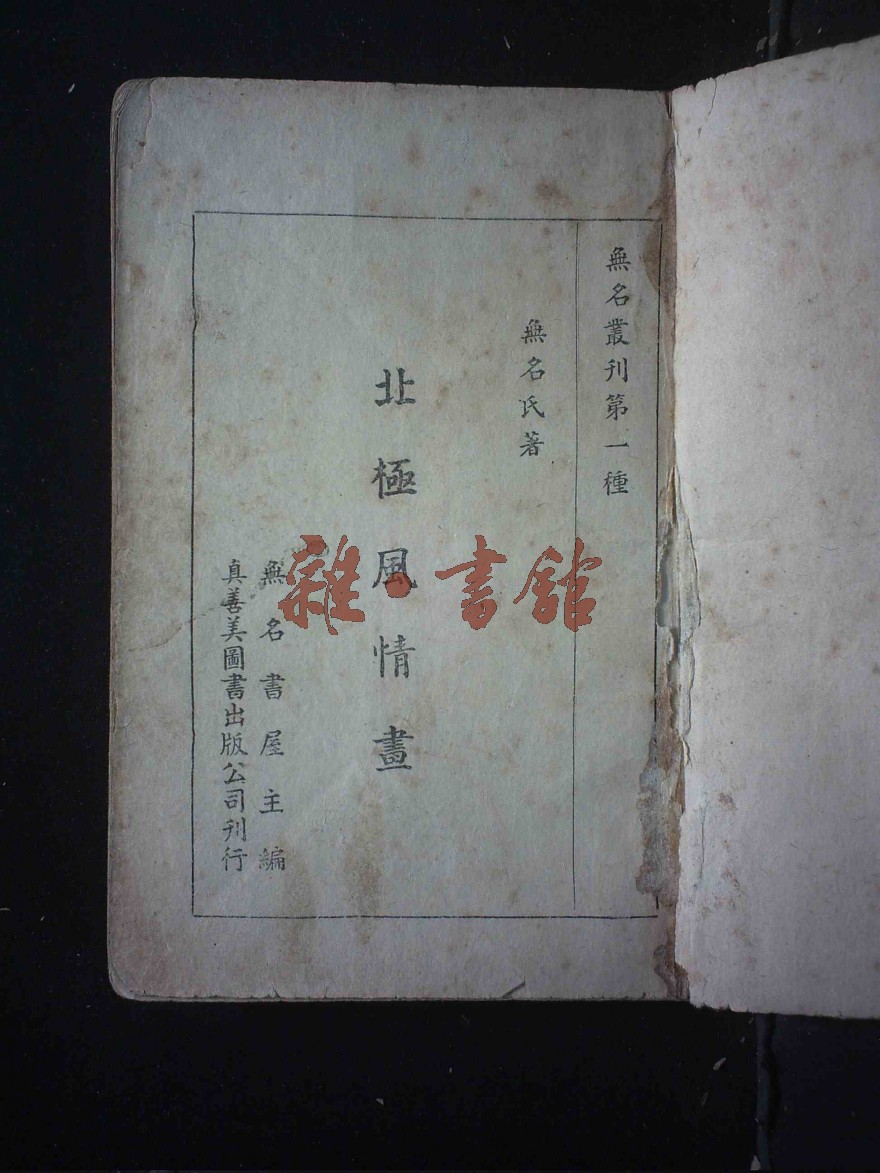 無名叢刊第一種
無名氏著
北極風情畫
無名書屋主編
真善美圖書出版公司刊行
雜·書館